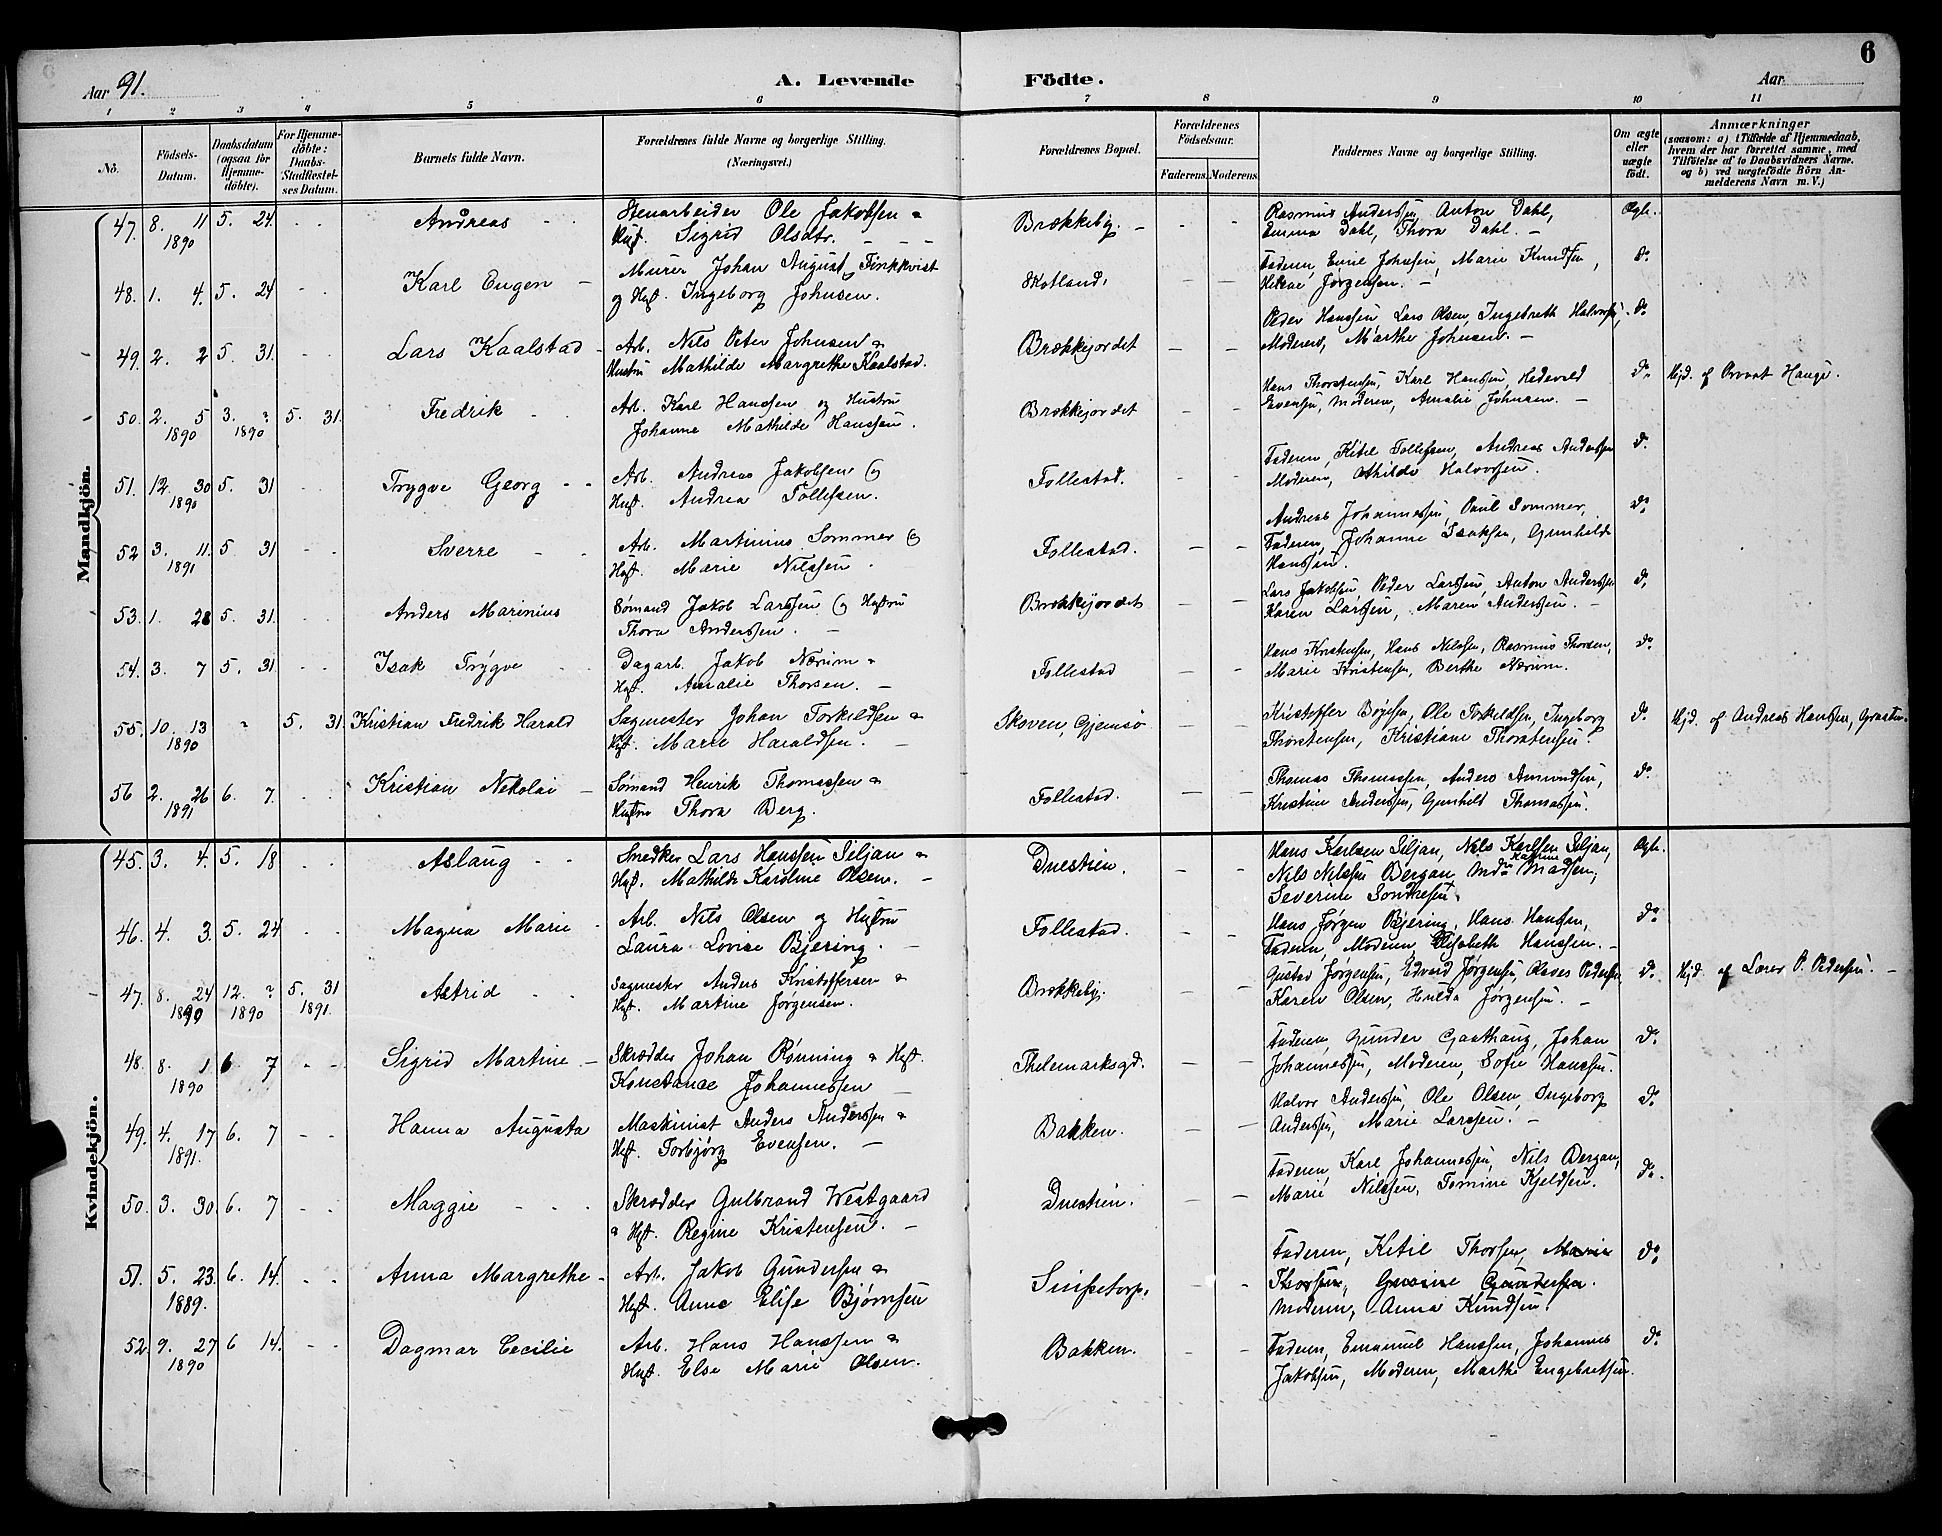 6
Aar 91. A. Levende Födte. Aar
1 2 3 4 5 6 7 8 9 10 11
No. Födsels-Datum. Daabsdatum (ogsaa for Hjemmedöbte). For Hjemmedöbte: Daabs-Stadfæstelses Datum. Barnets fulde Navn. Forældrenes fulde Navne og borgerlige Stilling. (Næringsvei.) Forældrenes Bopæl. Forældrenes Födselsaar. Faderens. Moderens. Faddernes Navne og borgerlige Stilling. Om ægte eller uægte födt. Anmærkninger (saasom: a) i Tilfælde af Hjemmedaab, hvem der har forrettet samme, med Tilföielse af to Daabsvidners Navne. og b) ved uægtefödte Börn Anmelderens Navn m. V.)
Mandkjön.
47. 8. 11 1890 5. 24. - - Andreas - - Stenarbeider Ole Jakobsen & Hust. Sigrid Olsdtr. Brækkeby. - - Rasmus Anderssen, Anton Dahl, Emma Dahl, Thora Dahl. Ægte.
48. 1. 4. 5. 24 - - Karl Eugen - Murer Johan August Finkkvist og Hust. Ingeborg Johnsen. Skotland, - - Faderen, Emil Johnsen, Marie Knudsen, Helene Jørgensen. Do
49. 2. 2 5. 31. - - Lars Kaalstad - Arb. Nils Peter Johnsen & Hustru Mathilde Margrethe Kaalstad. Brækkejordet - - Peder Hanssen, Lars Olsen, Ingebreth Halvorsen, Moderen, Marthe Johnsen. Do
50. 2. 5 1890 3. ? 1890 5. 31. Fredrik - - Arb. Karl Hanssen og Hustru Johanne Mathilde Hanssen. Brækkejordet - - Hans Thorstensen, Karl Hanssen, Hedevold Evensen, Moderen, Amalie Johnsen. Do Hjd. af Privat Hauge.
51. 12. 30 1890 5. 31 - - Trygve Georg - - Arb. Andreas Jakobsen og Hust. Andrea Tollefsen. Follestad. - - Faderen, Kitil Tollefsen, Andreas Anderssen Moderen, Athilde Halvorsen. Do
52 3. 11. 1891 5. 31 - - Sverre - - Arb. Martinius Sommer og Hust. Marie Nilssen. Follestad. - - Andreas Johannessen, Paul Sommer, Faderen, Johanne Isaksen, Gunhilde Hanssen. Do
53. 1. 28 5. 31. - - Anders Marinius Sømand Jakob Larssen og Hustru Thora Anderssen. Brækkejordet - - Lars Jakobsen, Peder Larssen, Anton Anderssen Karen Larssen, Maren Anderssen. Do
54. 3. 7 5. 31 - - Isak Trygve - - Dagarb. Jakob Nærum & Hust. Amalie Thorsen. Follestad - - Hans Kristensen, Hans Nilssen, Rasmus Thorsen, Marie Kristensen, Berthe Nærum. Do
55. 10. 13 1890 " 5. 31. Kristian Fredrik Harald Sagmester Johan Torkildsen & Hust. Marie Haraldsen. Skoven, Gjemsø - - Kristoffer Boyesen, Ole Torkildsen, Ingeborg Thorstensen, Kristiane Thorstensen. Do Hjd. af Andreas Hanssen,
56 2. 26 1891 6. 7. - - Kristian Nikolai - Sømand Henrik Thomassen & Hustru Thora Berg. Follestad. - - Thomas Thomassen, Anders Amundsen, Kristine Anderssen, Gunhild Thomassen. Do
Kvindekjön.
45. 3. 4. 5. 18 - - Aslaug - - Snedker Lars Hanssen Siljan & Hust. Mathilde Karoline Olsen. Duestien. - - Hans Karlsen Siljan, Nils Karlsen Siljan, Nils Nilssen Bergan, Katrine Madsen, Severine Sondresen. Ægte.
46. 4. 3. 5. 24 - - Magna Marie - Arb. Nils Olsen og Hustru Laura Lovise Bjering. Follestad. - - Hans Jørgen Bjering, Hans Hanssen, Faderen, Moderen, Elisabeth Hanssen. Do
47. 8. 24 1890 12. ? 1890 5. 31 1891. Astrid - - Sagmester Anders Kristoffersen & Hust. Martine Jørgensen. Brækkeby. - - Gustav Jørgensen, Edvard Jørgensen, Olaves Pedersen, Karen Olsen, Hulda Jørgensen. Do Hjd. af Lærer P. Pedersen.
48. 8. 1 1890 6. 7 - - Sigrid Martine - Skrædder Johan Rønning & Hust. Konstance Johannessen Thelemarksgd. - - Faderen, Gunder Gasthaug, Johan Johannessen, Moderen, Sofie Hanssen. Do
49. 4. 17 1891. 6. 7 - - Hanna Augusta Maskinist Anders Anderssen & Hust. Torbjørg Evensen. Bakken. - - Halvor Anderssen, Ole Olsen, Ingeborg Anderssen, Marie Larssen. Do
50. 3. 30. 6. 7 - - Maggie - - - Skrædder Gulbrand Westgaard & Hust. Regine Kristensen. Duestien. - - Faderen, Karl Johannessen, Nils Bergan, Marie Nilssen, Tomine Kjeldsen. Do
51. 5. 23. 1889. 6. 14. - - Anna Margrethe - Arb. Jakob Gundersen & Hust. Anne Elise Bjørnsen - - Faderen, Ketil Thorsen, Marie Thorsen, Gundersen. Moderen, Anna Knudsen. Do
52. 9. 27 1890 6 14. - - Dagmar Cecilie Arb. Hans Hanssen & Hust. Else Marie Olsen. Bakken. - - Faderen, Emanuel Hanssen, Johannes Jakobsen, Moderen, Marthe Engebretsen. Do